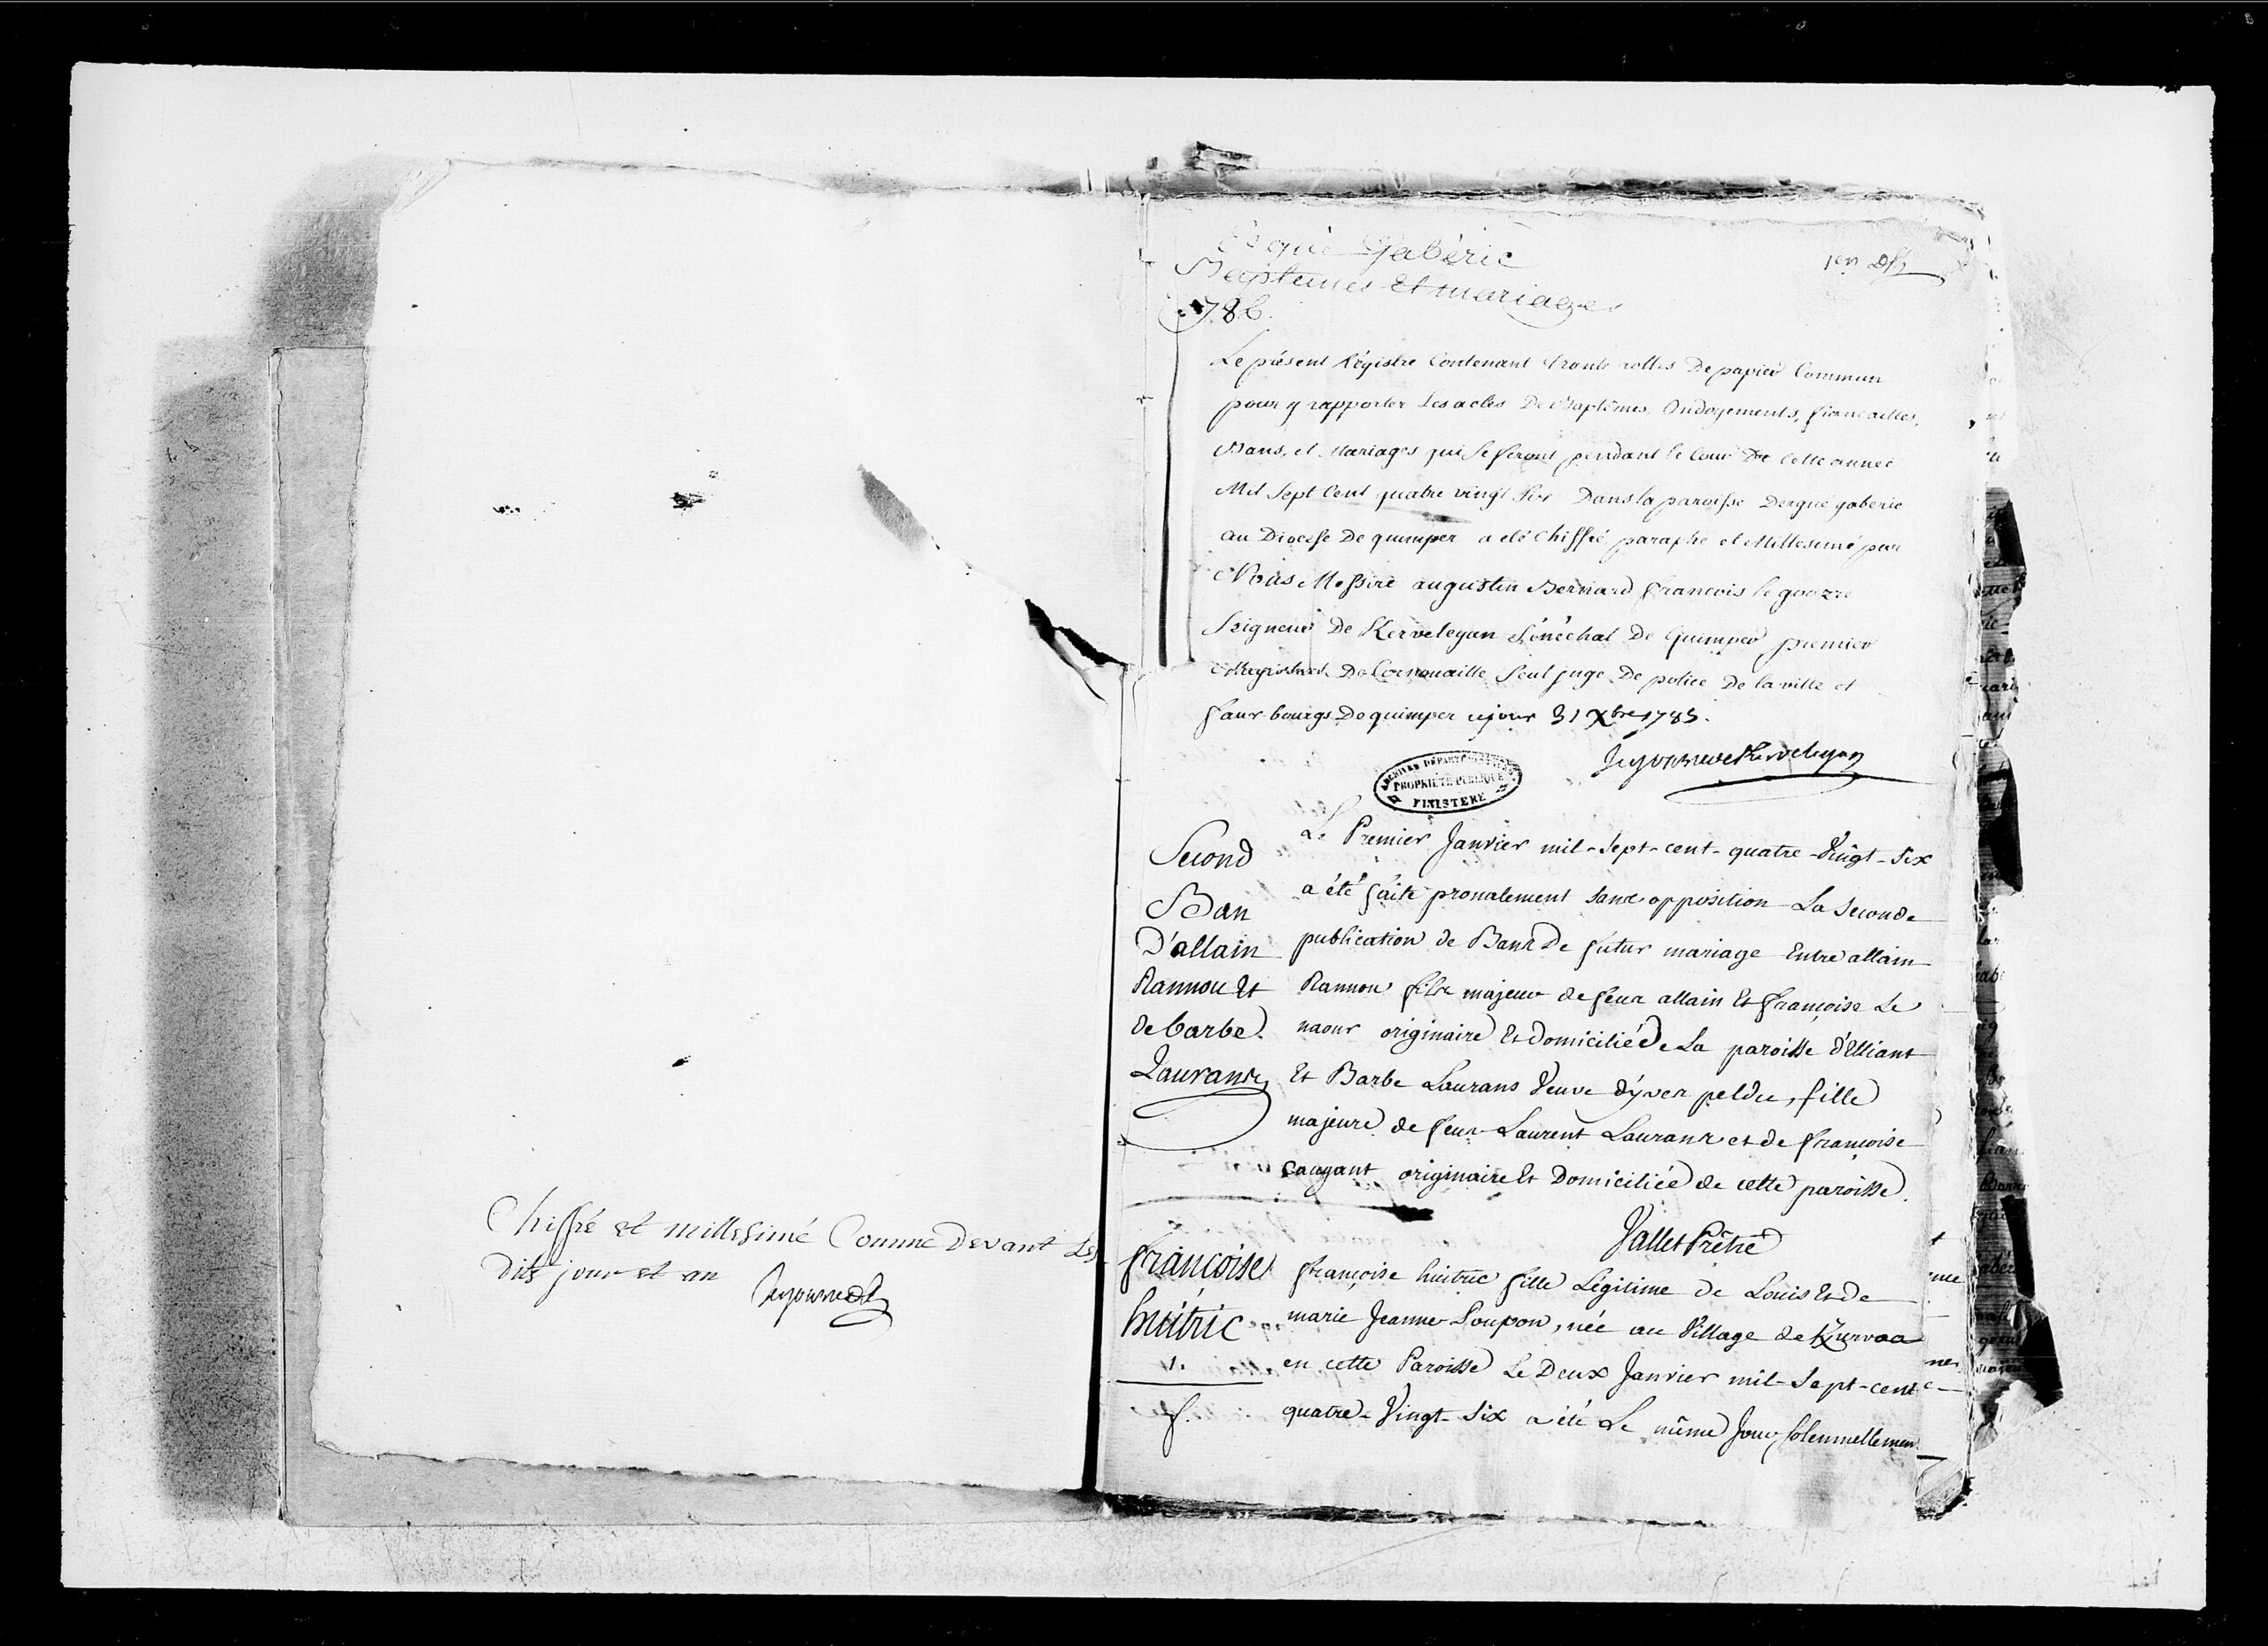 Chiffré et millesimé Comme devant Les
dits jour et an
Ergué Gabéric
Baptemes et mariages
1786.
1er
Le présent Régistre Contenant trente rolles De papier Commun
pour y rapporter Les actes De Baptêmes, Ondoyements, fiancailles,
Bans, et Mariages qui se feront pendant le Cour De Cette année
Mil Sept Cent quatre vingt Six Dans la paroisse Dergue gaberic
au Diocese De quimper a eté Chiffré paraphé et Millesimé par
Nous Messire augustin Bernard francois le goazre
Seigneur De Kervelegan Sénéchal De Quimper premier
Magistrat De Cornouaille Seul juge De police De la ville et
faux bourgs De quimper ce jour 31 Xbre 1785.
Le goazre de Kervelegan
ARCHIVES DÉPARTEMENTALES
PROPRIÉTÉ PUBLIQUE
FINISTERE
Second
Ban
D'allain
Rannou Et
de barbe
Laurans
Le Premier Janvier mil-sept-cent-quatre-Vingt-Six
a été faite pronalement sans opposition La Seconde
publication de Bans De futur mariage Entre allain
Rannou fils majeur de feux allain Et françoise Le
naour originaire Et Domicilié De La paroisse d'Elliant
Et Barbe Laurans Veuve d'yves peldu, fille
majeure de feux Laurent Laurans et de françoise
originaire Et Domiciliée de cette paroisse.
Vallet Prêtre
françoise
huitric
1.
f.
françoise huitric fille Légitime de Louis Et de
marie Jeanne Loupon, née au Village de
en cette Paroisse Le Deux Janvier mil-Sept-cent-
quatre-Vingt-Six a été Le même Jour solemnellemen